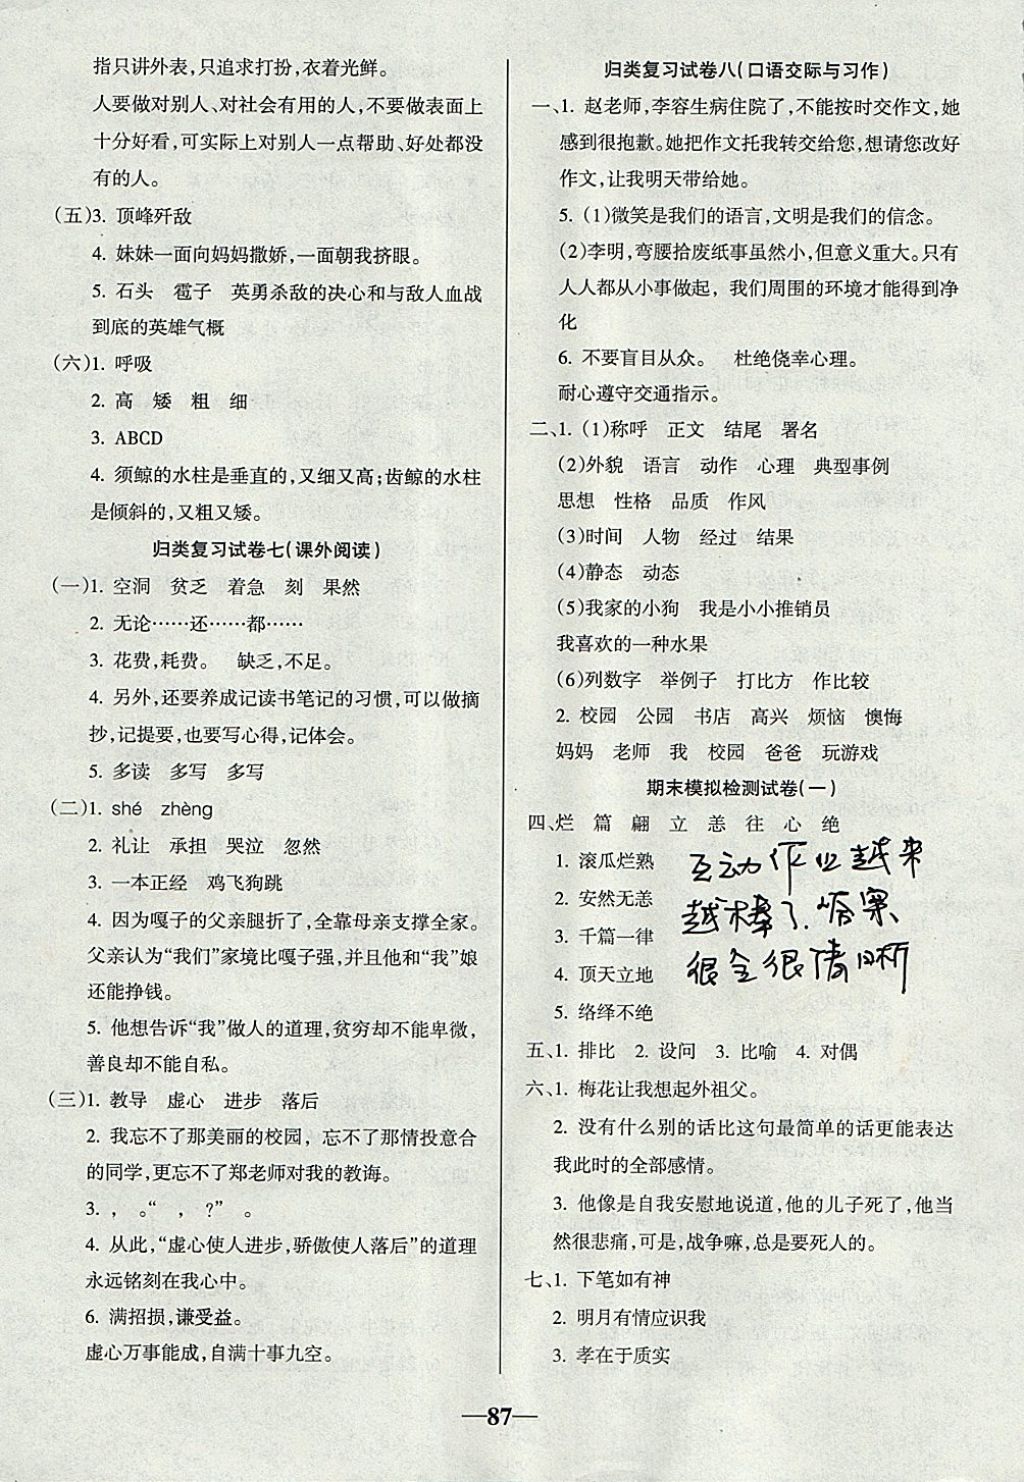 指只讲外表,只追求打扮,衣着光鲜。
人要做对别人、对社会有用的人,不要做表面上
十分好看,可实际上对别人一点帮助、好处都没
有的人。
(五)3. 顶峰歼敌
4. 妹妹一面向妈妈撒娇,一面朝我挤眼。
5. 石头 雹子 英勇杀敌的决心和与敌人血战
到底的英雄气概
(六)1. 呼吸
2. 高 矮 粗 细
3. ABCD
4. 须鲸的水柱是垂直的,又细又高;齿鲸的水柱
是倾斜的,又粗又矮。
归类复习试卷七(课外阅读)
(一)1. 空洞 贫乏 着急 刻 果然
2. 无论……还……都……
3. 花费,耗费。 缺乏,不足。
4. 另外,还要养成记读书笔记的习惯,可以做摘
抄,记提要,也要写心得,记体会。
5. 多读 多写 多写
(二)1. shé zhèng
2. 礼让 承担 哭泣 忽然
3. 一本正经 鸡飞狗跳
4. 因为嘎子的父亲腿折了,全靠母亲支撑全家。
父亲认为“我们”家境比嘎子强,并且他和“我”娘
还能挣钱。
5. 他想告诉“我”做人的道理,贫穷却不能卑微,
善良却不能自私。
(三)1. 教导 虚心 进步 落后
2. 我忘不了那美丽的校园, 忘不了那情投意合
的同学,更忘不了郑老师对我的教诲。
3. , 。“ , ?” 。
4. 从此,“虚心使人进步,骄傲使人落后”的道理
永远铭刻在我心中。
6. 满招损,谦受益。
虚心万事能成,自满十事九空。
归类复习试卷八(口语交际与习作)
一、1. 赵老师,李容生病住院了,不能按时交作文,她
感到很抱歉。她把作文托我转交给您,想请您改好
作文,让我明天带给她。
5. (1)微笑是我们的语言,文明是我们的信念。
(2)李明,弯腰拾废纸事虽然小,但意义重大。只有
人人都从小事做起, 我们周围的环境才能得到净
化
6. 不要盲目从众。 杜绝侥幸心理。
耐心遵守交通指示。
二、1. (1)称呼 正文 结尾 署名
(2)外貌 语言 动作 心理 典型事例
思想 性格 品质 作风
(3)时间 人物 经过 结果
(4)静态 动态
(5)我家的小狗 我是小小推销员
我喜欢的一种水果
(6)列数字 举例子 打比方 作比较
2. 校园 公园 书店 高兴 烦恼 懊悔
妈妈 老师 我 校园 爸爸 玩游戏
期末模拟检测试卷(一)
四、烂 篇 翩 立 恙 往 心 绝
1. 滚瓜烂熟
2. 安然无恙
3. 千篇一律
4. 顶天立地
5. 络绎不绝
互动作业越来
越棒了.答案
很全很清晰
五、1. 排比 2. 设问 3. 比喻 4. 对偶
六、1. 梅花让我想起外祖父。
2. 没有什么别的话比这句最简单的话更能表达
我此时的全部感情。
3. 他像是自我安慰地说道,他的儿子死了,他当
然很悲痛,可是,战争嘛,总是要死人的。
七、1. 下笔如有神
2. 明月有情应识我
3. 孝在于质实
—87—